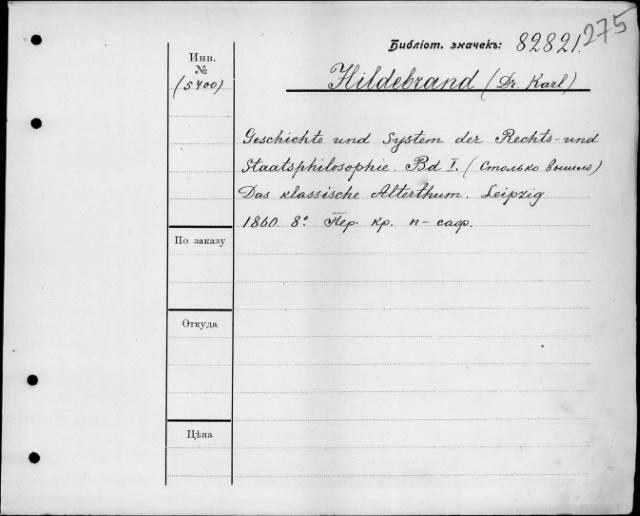 Библіот. значекъ: 82821. 275
Инв.
№
(5400)
Hildebrand (Dr. Karl)
Geschichte und System der Rechts- und
Staatsphilosophie. Bd I. (Столько вышло)
Das klassische Alterthum. Leipzig
1860. 8°. Пер. кр. п-саф.
По заказу
Откуда
Цѣна